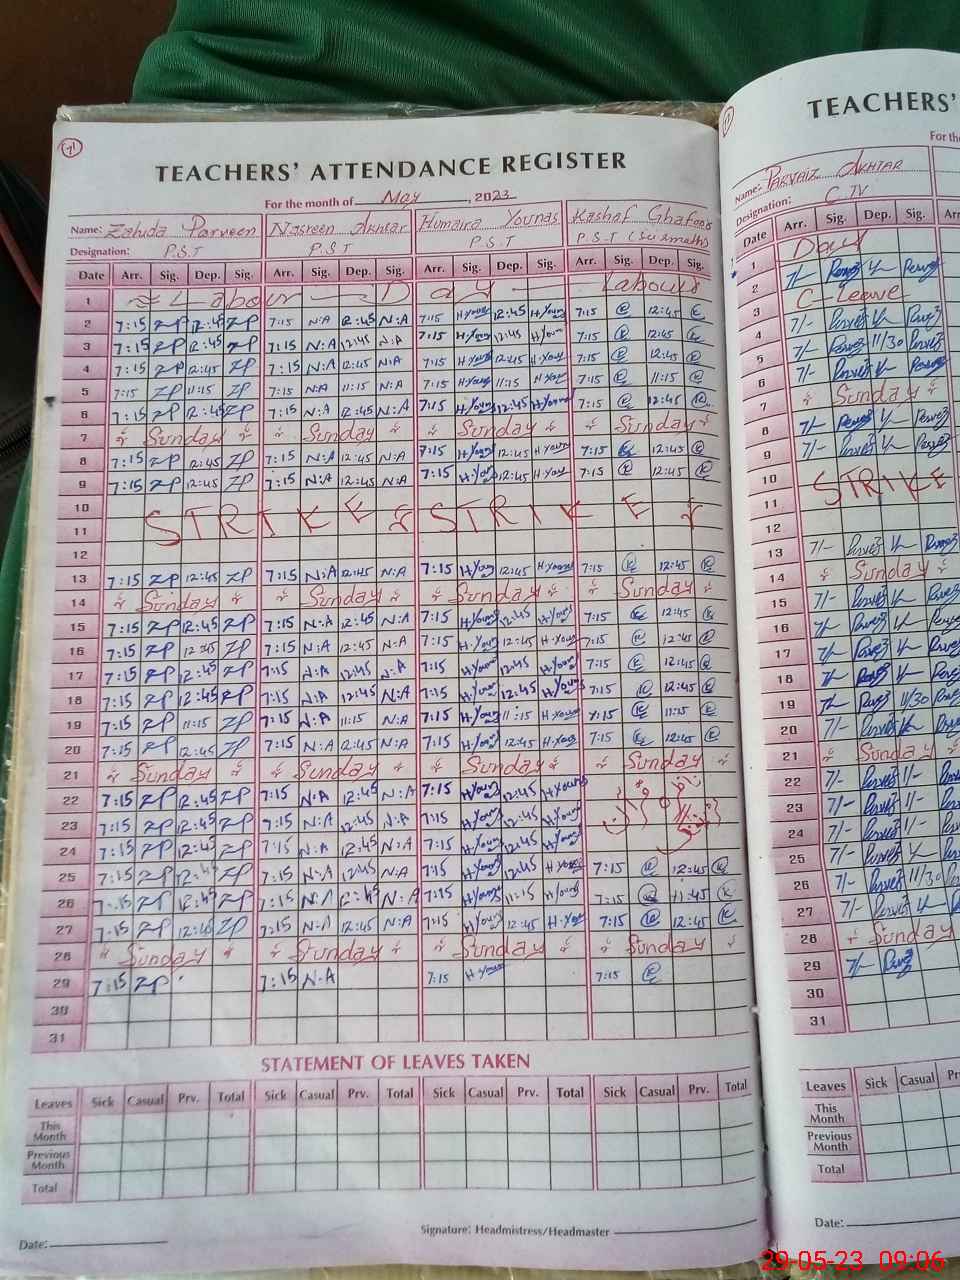 71
TEACHERS' ATTENDANCE REGISTER
For the month of May, 2023
Name: Zahida Parveen Nasreen Akhtar Humaira Younas Kashaf Ghafoor
Designation: P.S.T P.S.T P.S.T P.S.T
Date Arr. Sig. Dep. Sig. Arr. Sig. Dep. Sig. Arr. Sig. Dep. Sig. Arr. Sig. Dep. Sig.
1 Labour Day Labour
2 7:15 ZP 12:45 ZP 7:15 N.A 12:45 N.A 7:15 H.Youn 12:45 H.Youn 7:15 12:45
3 7:15 ZP 12:45 ZP 7:15 N.A 12:45 N.A 7:15 H.Youn 12:45 H.Youn 7:15 12:45
4 7:15 ZP 12:45 ZP 7:15 N.A 12:45 N.A 7:15 H.Youn 12:45 H.Youn 7:15 12:45
5 7:15 ZP 11:15 ZP 7:15 N.A 11:15 N.A 7:15 H.Youn 11:15 H.Youn 7:15 11:15
6 7:15 ZP 12:45 ZP 7:15 N:A 12:45 N.A 7:15 H.Youn 12:45 H.Youn 7:15 12:45
7 Sunday Sunday Sunday Sunday
8 7:15 ZP 12:45 ZP 7:15 N.A 12:45 N:A 7:15 H.Youn 12:45 H.Youn 7:15 12:45
9 7:15 ZP 12:45 ZP 7:15 N:A 12:45 N.A 7:15 H.You 12:45 H.You 7:15 12:45
10
11 STRIKE STRIKE
12
13 7:15 ZP 12:45 ZP 7:15 N:A 12:45 N:A 7:15 H.Youn 12:45 H.Youn 7:15 12:45
14 Sunday Sunday Sunday Sunday
15 7:15 ZP 12:45 ZP 7:15 N.A 12:45 N.A 7:15 H.Youn 12:45 H.Youn 7:15 12:45
16 7:15 ZP 12:45 ZP 7:15 N.A 12:45 N.A 7:15 H.Youn 12:45 H.Youn 7:15 12:45
17 7:15 ZP 12:45 ZP 7:15 N.A 12:45 N.A 7:15 H.Youn 12:45 H.Youn 7:15 12:45
18 7:15 ZP 12:45 ZP 7:15 N:A 12:45 N.A 7:15 H.Youn 12:45 H.Youn 7:15 12:45
19 7:15 ZP 11:15 ZP 7:15 N.A 11:15 N:A 7:15 H.Youn 11:15 H.Youn 7:15 11:15
20 7:15 ZP 12:45 ZP 7:15 N:A 12:45 N:A 7:15 H.Youn 12:45 H.Youn 7:15 12:45
21 Sunday Sunday Sunday Sunday
22 7:15 ZP 12:45 ZP 7:15 N.A 12:45 N.A 7:15 H.Youn 12:45 H.Youns
23 7:15 ZP 12:45 ZP 7:15 N.A 12:45 N.A 7:15 H.Youn 12:45 H.Youns
24 7:15 ZP 12:45 ZP 7:15 N.A 12:45 N.A 7:15 H.Youn 12:45 H.Youns
25 7:15 ZP 12:45 ZP 7:15 N.A 12:45 N.A 7:15 H.Youn 12:45 H.Youn 7:15 12:45
26 7:15 ZP 12:45 ZP 7:15 N.A 12:45 N.A 7:15 H.Youns 11:15 H.Youns 7:15 11:45
27 7:15 ZP 12:45 ZP 7:15 N.A 12:45 N.A 7:15 H.Youns 12:45 H.You 7:15 12:45
28 Sunday Sunday Sunday Sunday
29 7:15 ZP 7:15 N.A 7:15 H.Youn 7:15
30
31
STATEMENT OF LEAVES TAKEN
Leaves Sick Casual Prv. Total Sick Casual Prv. Total Sick Casual Prv. Total Sick Casual Prv. Total
This Month
Previous Month
Total
Signature: Headmistress/Headmaster
Date:
TEACHERS'
For the
Name: Parvaiz Akhtar
Designation: C TV
Date Arr. Sig. Dep. Sig. Arr.
1 Day
2 7/- Parvez Parvez
3 C-Leave
4 7/- Parvez Parvez
5 7/- Parvez 11/30 Parvez
6 7/- Parvez Parvez
7 Sunday
8 7/- Parvez Parvez
9 7/- Parvez Parvez
10
11 STRIKE
12
13 7/- Parvez Parvez
14 Sunday
15 7/- Parvez Parvez
16 7/- Parvez Parvez
17 7/- Parvez Parvez
18 7/- Parvez Parvez
19 7/- Parvez 11/30 Parvez
20 7/- Parvez Parvez
21 Sunday
22 7/- Parvez 11/-
23 7/- Parvez 11/-
24 7/- Parvez 11/-
25 7/- Parvez
26 7/- Parvez 11/30
27 7/- Parvez
28 Sunday
29 7/- Parvez
30
31
Leaves Sick Casual
This Month
Previous Month
Total
Date:
29-05-23 09:06